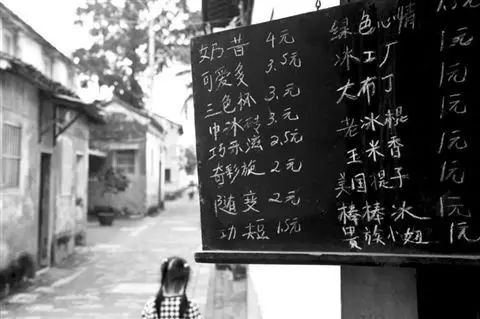 奶昔 4元
可爱多 3.5元
三色杯 3.元
中冰砖 3.元
巧乐滋 2.5元
奇彩旋 2元
随变 2元
功 1.5元
绿色心情
冰工厂 1元
大布丁 1元
老冰棍 1元
玉米香 1元
美国棍子 1元
棒棒冰 1元
貴族小姐 1元